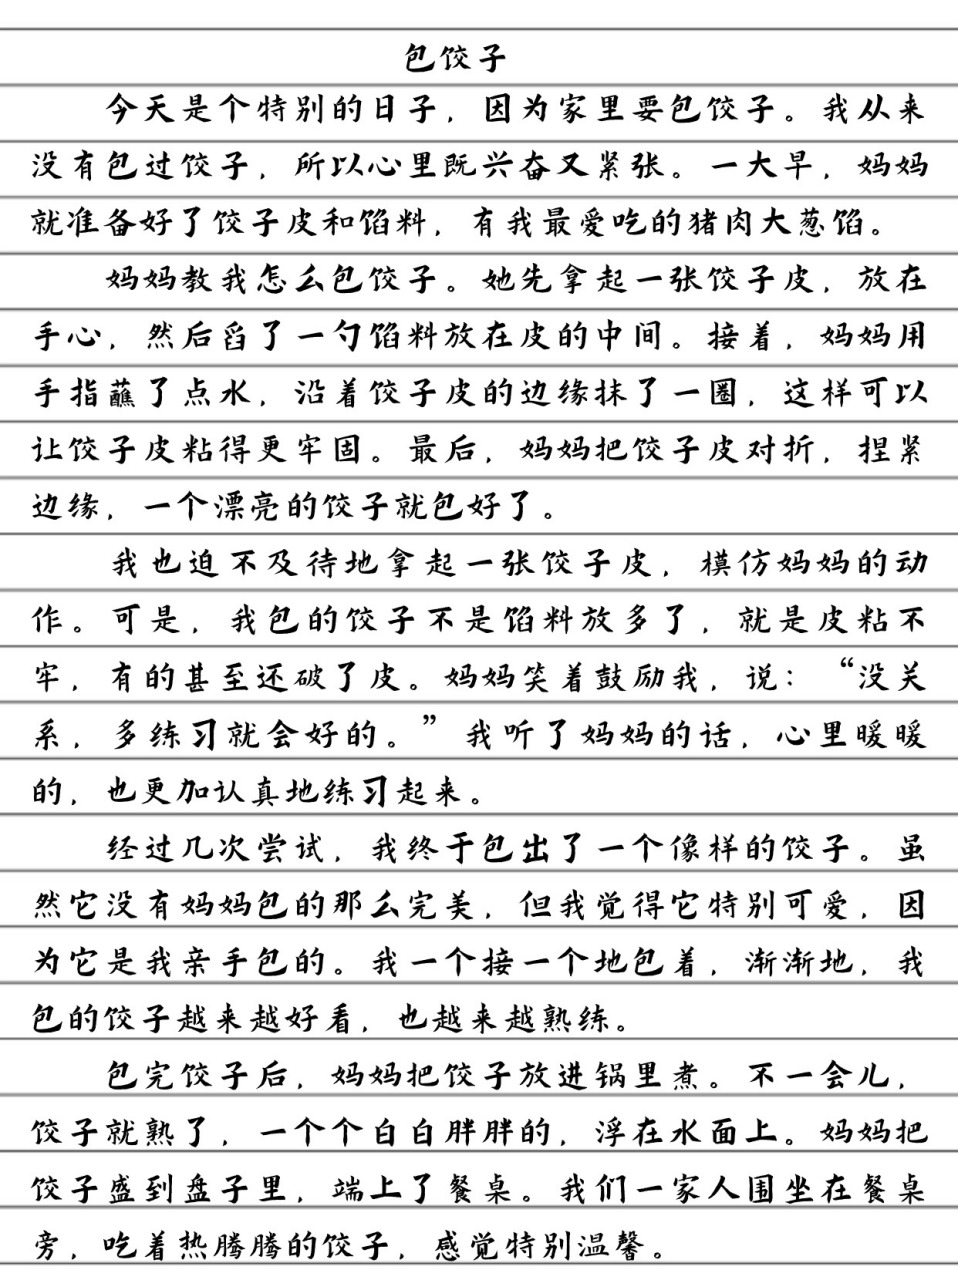 包饺子
今天是个特别的日子，因为家里要包饺子。我从来
没有包过饺子，所以心里既兴奋又紧张。一大早，妈妈
就准备好了饺子皮和馅料，有我最爱吃的猪肉大葱馅。
妈妈教我怎么包饺子。她先拿起一张饺子皮，放在
手心，然后舀了一勺馅料放在皮的中间。接着，妈妈用
手指蘸了点水，沿着饺子皮的边缘抹了一圈，这样可以
让饺子皮粘得更牢固。最后，妈妈把饺子皮对折，捏紧
边缘，一个漂亮的饺子就包好了。
我也迫不及待地拿起一张饺子皮，模仿妈妈的动
作。可是，我包的饺子不是馅料放多了，就是皮粘不
牢，有的甚至还破了皮。妈妈笑着鼓励我，说：“没关
系，多练习就会好的。”我听了妈妈的话，心里暖暖
的，也更加认真地练习起来。
经过几次尝试，我终于包出了一个像样的饺子。虽
然它没有妈妈包的那么完美，但我觉得它特别可爱，因
为它是我亲手包的。我一个接一个地包着，渐渐地，我
包的饺子越来越好看，也越来越熟练。
包完饺子后，妈妈把饺子放进锅里煮。不一会儿，
饺子就熟了，一个个白白胖胖的，浮在水面上。妈妈把
饺子盛到盘子里，端上了餐桌。我们一家人围坐在餐桌
旁，吃着热腾腾的饺子，感觉特别温馨。